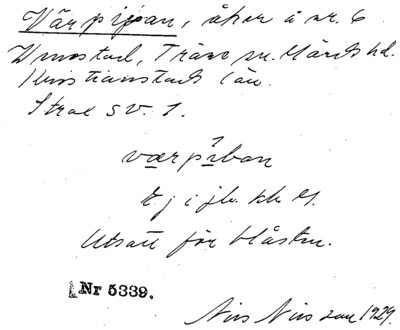 Värpipan, åker å nr. 6
Ynnestad, Träne sn. Gärds hd.
Kristianstads län.
Strax SV. 1.
værpiban
Ej i jb. kk ll.
Utsatt för blåsten.
Nr 5339.
Nils Nilsson 1929.